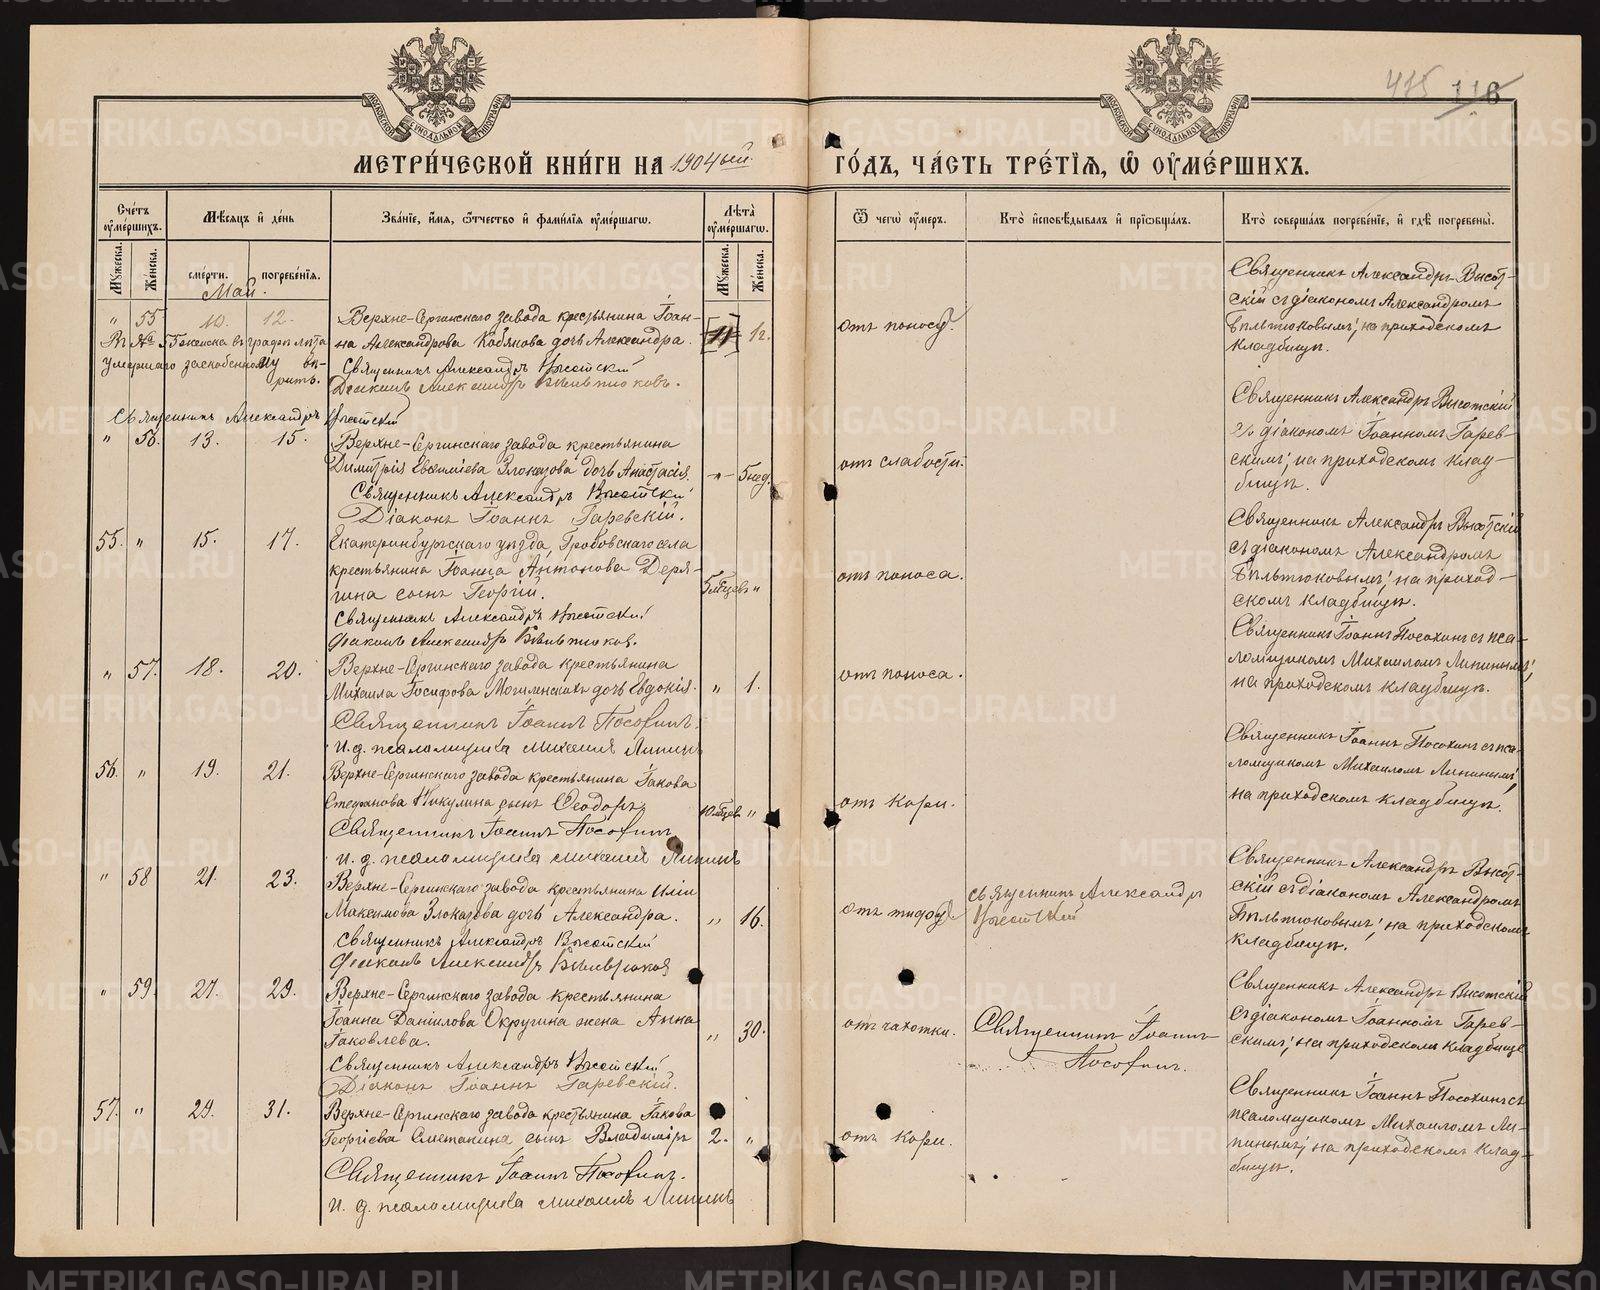 475 116
МЕТРИ́ЧЕСКОЙ КНИ́ГИ НА 1904ый
ГО́ДЪ, ЧА́СТЬ ТРЕ́ТІѦ, Ѡ҆ ОУ҆МЕ́РШИХЪ.
Сче́тъ оу҆ме́ршихъ.
Мѣ́сяцъ и҆ де́нь
Зва́ніе, и҆́мѧ, ѻ҆́тчество и҆ фами́лїѧ оу҆ме́ршагѡ.
Лѣ́та оу҆ме́ршагѡ.
Ѿ чегѡ̀ оу҆́меръ.
Кто̀ и҆сповѣ́дывалъ и҆ прїѡбща́лъ.
Кто̀ соверша́лъ погребе́нїе, и҆ гдѣ̀ погребены̀.
Мꙋ́жеска.
Же́нска.
сме́рти.
погребе́нїѧ.
Мꙋ́жеска.
Же́нска.
Май.
" 55 10. 12.
Верхне-Сергинскаго завода крестьянина Іоан-
на Александрова Кобякова дочь Александра.
11 1г.
отъ поносу.
Священникъ Александръ Высот-
скій съ діакономъ Александромъ
Бѣльтюковымъ; на приходскомъ
кладбищѣ.
Въ № 55 женска въ графѣ лѣта
умершаго заскобенному вѣ-
рить.
Священникъ Александръ Высотскій
Діаконъ Александръ Бѣльтюковъ.
Священникъ Александръ Высотскій
" 56. 13. 15.
Верхне-Сергинскаго завода крестьянина
Димитрія Евѳиміева Злоказова дочь Анастасія.
Священникъ Александръ Высотскій
Діаконъ Іоаннъ Гаревскій.
-"- 5 нед.
отъ слабости.
Священникъ Александръ Высотскій
съ діакономъ Іоанномъ Гарев-
скимъ; на приходскомъ клад-
бищѣ.
55. " 15. 17.
Екатеринбургскаго уѣзда, Гробовскаго села
крестьянина Іоанна Антонова Деря-
гина сынъ Георгій.
Священникъ Александръ Высотскій
Діаконъ Александръ Бѣльтюковъ.
5 мѣсяцевъ "
отъ поноса.
Священникъ Александръ Высотскій
съ діакономъ Александромъ
Бѣльтюковымъ; на приход-
скомъ кладбищѣ.
" 57. 18. 20.
Верхне-Сергинскаго завода крестьянина
Михаила Іосифова Могиленскихъ дочь Евдокія.
Священникъ Іоаннъ Посохинъ.
И. д. псаломщика Михаилъ Липинъ
" 1.
отъ поноса.
Священникъ Іоаннъ Посохинъ съ пса-
ломщикомъ Михаиломъ Липинымъ;
на приходскомъ кладбищѣ.
56. " 19. 21.
Верхне-Сергинскаго завода крестьянина Іакова
Стефанова Никулина сынъ Ѳеодоръ.
Священникъ Іоаннъ Посохинъ
И. д. псаломщика Михаилъ Липинъ
10 мѣсяцев "
отъ кори.
Священникъ Іоаннъ Посохинъ съ пса-
ломщикомъ Михаиломъ Липинымъ;
на приходскомъ кладбищѣ.
" 58 21. 23.
Верхне-Сергинскаго завода крестьянина Иліи
Максимова Злоказова дочь Александра.
Священникъ Александръ Высотскій
Діаконъ Александръ Бѣльтюковъ
" 16.
отъ тифоу
Священникъ Александръ
Высотскій
Священникъ Александръ Высот-
скій съ діакономъ Александромъ
Бѣльтюковымъ; на приходскомъ
кладбищѣ.
" 59. 27. 29.
Верхне-Сергинскаго завода крестьянина
Іоанна Даніилова Округина жена Анна
Іаковлева.
Священникъ Александръ Высотскій
Діаконъ Іоаннъ Гаревскій.
" 30.
отъ чахотки.
Священникъ Іоаннъ
Посохинъ.
Священникъ Александръ Высотскій
съ діакономъ Іоанномъ Гарев-
скимъ; на приходскомъ кладбище
57. " 29. 31.
Верхне-Сергинскаго завода крестьянина Іакова
Георгіева Сметанина сынъ Владиміръ
Священникъ Іоаннъ Посохинъ.
И. д. псаломщика Михаилъ Липинъ
2. "
отъ кори.
Священникъ Іоаннъ Посохинъ съ
псаломщикомъ Михаиломъ Ли-
пинымъ; на приходскомъ клад-
бищѣ.
METRIKI.GASO-URAL.RU